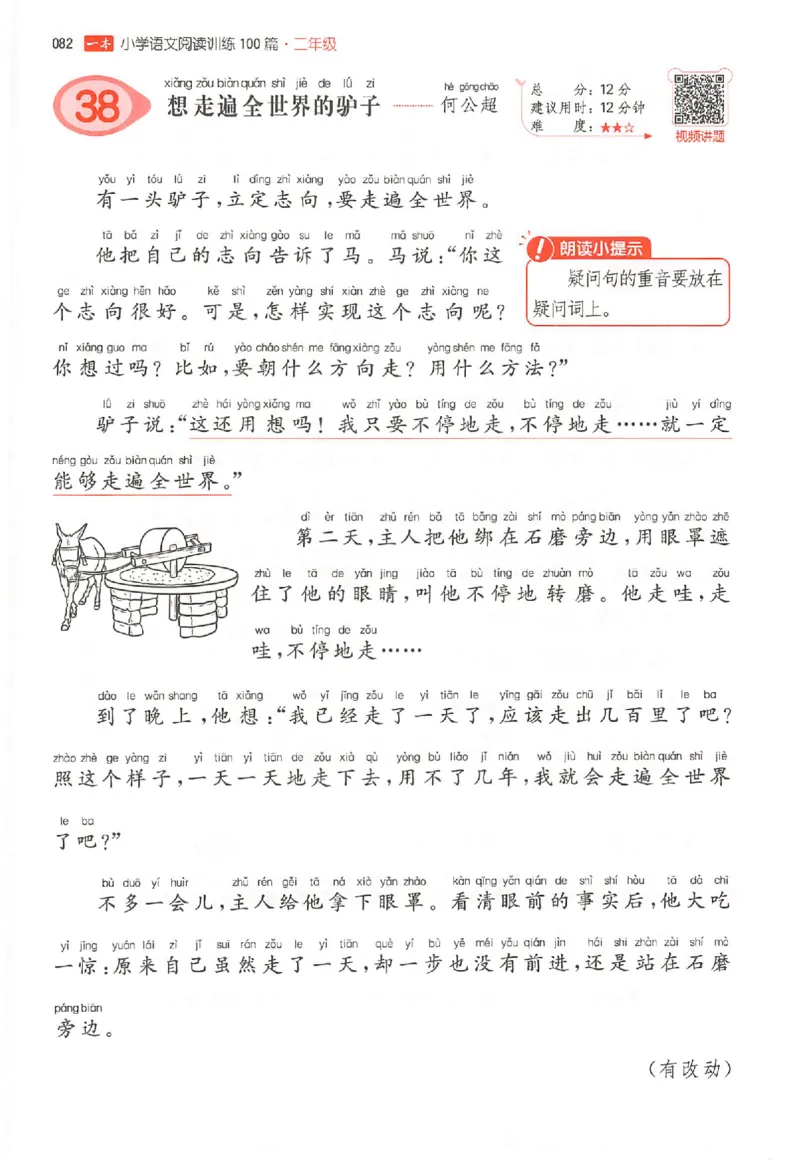 082 一本 小学语文阅读训练100篇·二年级
xiǎng zǒu biàn quán shì jiè de lǘ zi hé gōng chāo
38 想走遍全世界的驴子 ………… 何公超
总 分：12分
建议用时：12分钟
难 度：★★☆
视频讲题
yǒu yì tóu lǘ zi lì dìng zhì xiàng yào zǒu biàn quán shì jiè
有一头驴子，立定志向，要走遍全世界。
tā bǎ zì jǐ de zhì xiàng gào su le mǎ mǎ shuō nǐ zhè
他把自己的志向告诉了马。马说：“你这
ge zhì xiàng hěn hǎo kě shì zěn yàng shí xiàn zhè ge zhì xiàng ne
个志向很好。可是，怎样实现这个志向呢？
! 朗读小提示
疑问句的重音要放在
疑问词上。
nǐ xiǎng guo ma bǐ rú yào cháo shén me fāng xiàng zǒu yòng shén me fāng fǎ
你想过吗？比如，要朝什么方向走？用什么方法？”
lǘ zi shuō zhè hái yòng xiǎng ma wǒ zhǐ yào bù tíng de zǒu bù tíng de zǒu jiù yí dìng
驴子说：“这还用想吗！我只要不停地走，不停地走……就一定
néng gòu zǒu biàn quán shì jiè
能够走遍全世界。”
dì èr tiān zhǔ rén bǎ tā bǎng zài shí mò páng biān yòng yǎn zhào zhē
第二天，主人把他绑在石磨旁边，用眼罩遮
zhù le tā de yǎn jing jiào tā bù tíng de zhuàn mò tā zǒu wa zǒu
住了他的眼睛，叫他不停地转磨。他走哇，走
wa bù tíng de zǒu
哇，不停地走……
dào le wǎn shang tā xiǎng wǒ yǐ jīng zǒu le yì tiān le yīng gāi zǒu chū jǐ bǎi lǐ le ba
到了晚上，他想：“我已经走了一天了，应该走出几百里了吧？
zhào zhè ge yàng zi yì tiān yì tiān de zǒu xià qù yòng bù liǎo jǐ nián wǒ jiù huì zǒu biàn quán shì jiè
照这个样子，一天一天地走下去，用不了几年，我就会走遍全世界
le ba
了吧？”
bù duō yí huìr zhǔ rén gěi tā ná xià yǎn zhào kàn qīng yǎn qián de shì shí hòu tā dà chī
不多一会儿，主人给他拿下眼罩。看清眼前的事实后，他大吃
yì jīng yuán lái zì jǐ suī rán zǒu le yì tiān què yí bù yě méi yǒu qián jìn hái shi zhàn zài shí mò
一惊：原来自己虽然走了一天，却一步也没有前进，还是站在石磨
páng biān
旁边。
（有改动）